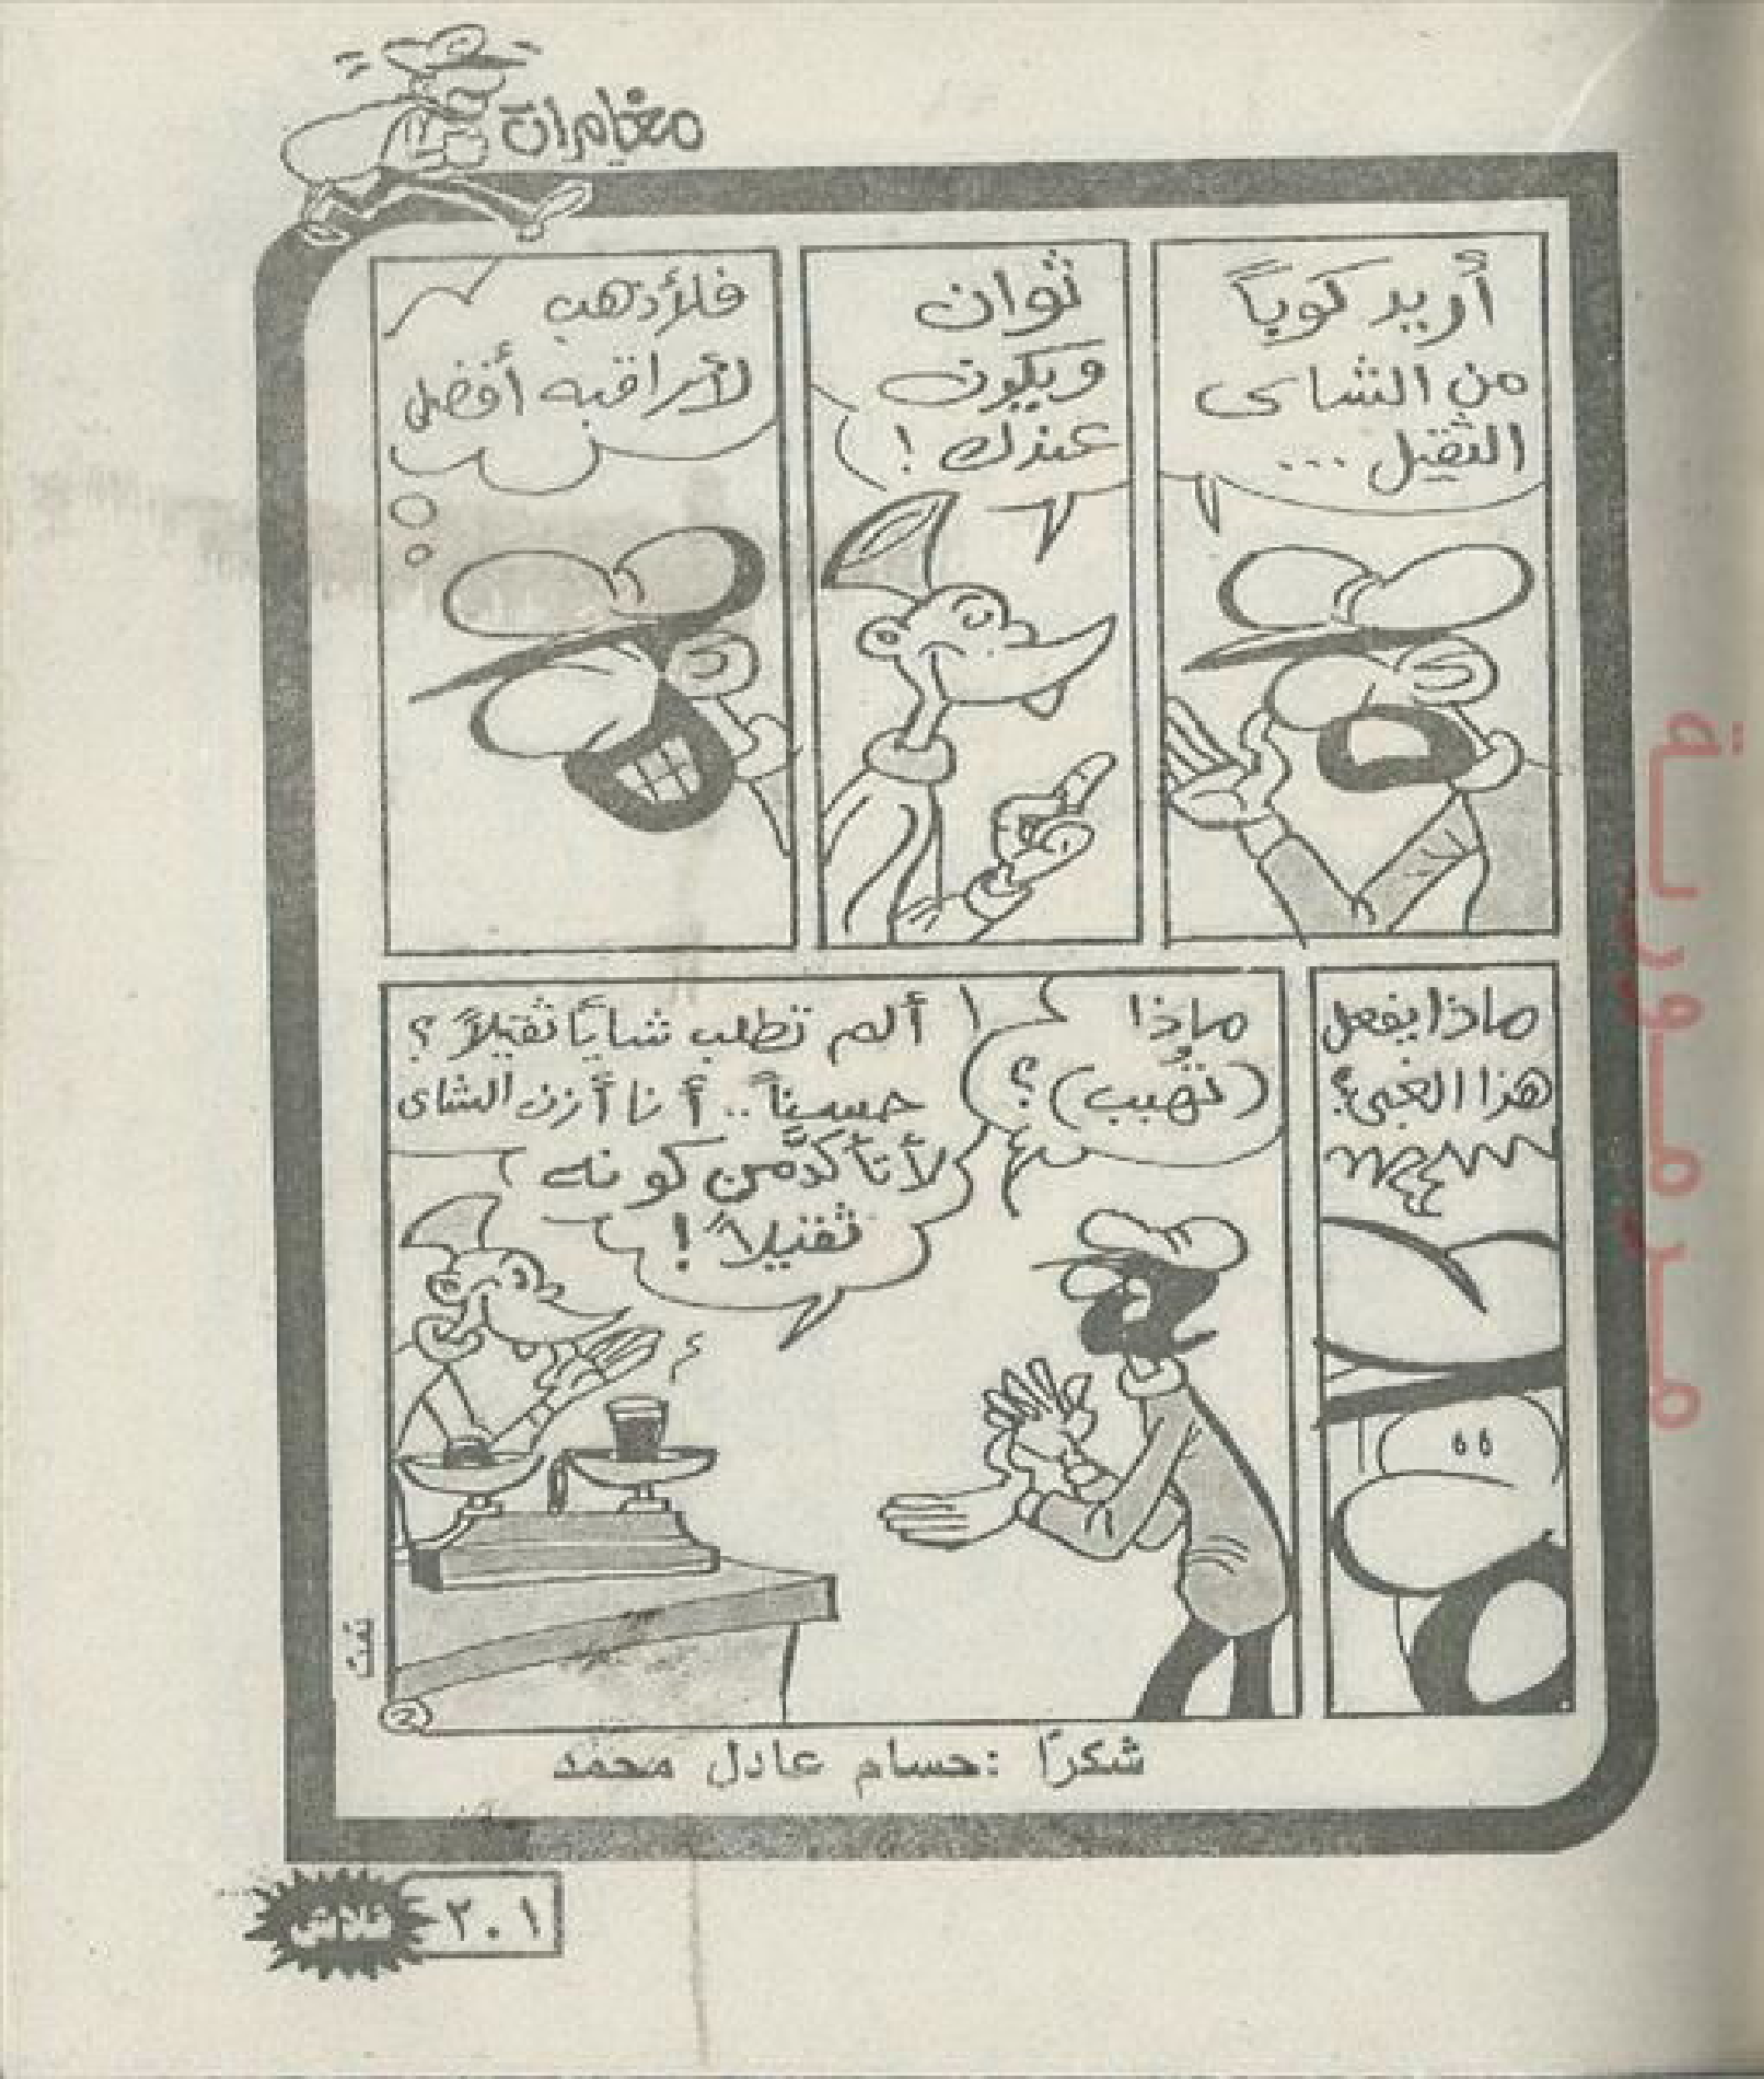 مغامرات
أريد كوباً
من الشاى
الثقيل ...
ثوان
ويكون
عندك !
فلأذهب
لأراقبه أفضل
ماذا يفعل
هذا الغبى؟
ماذا
(تهبب) ؟
ألم تطلب شايًا ثقيلاً ؟
حسناً .. أنا أزن الشاى
لأتأكد من كونه
ثقيلاً !
تمت
2
شكرًا : حسام عادل محمد
٢٠١
فلاش